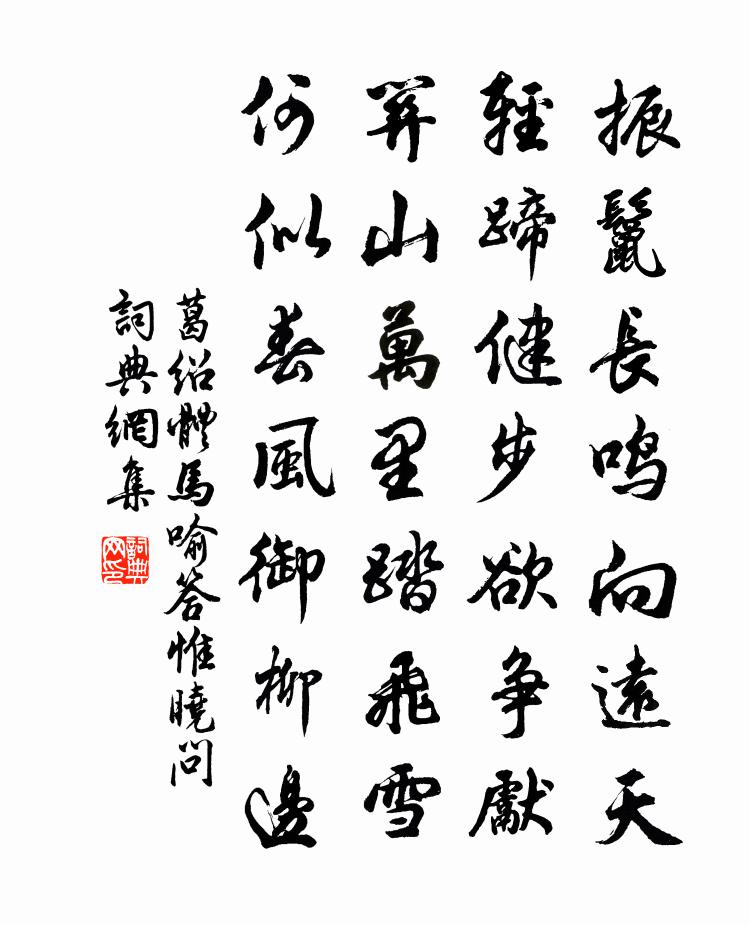 振鬣長鳴向遠天
輕蹄健步欲争獻
關山萬里踏飛雪
何似春風御柳邊
葛绍體馬喻答惟曉問
詞典網集
詞典